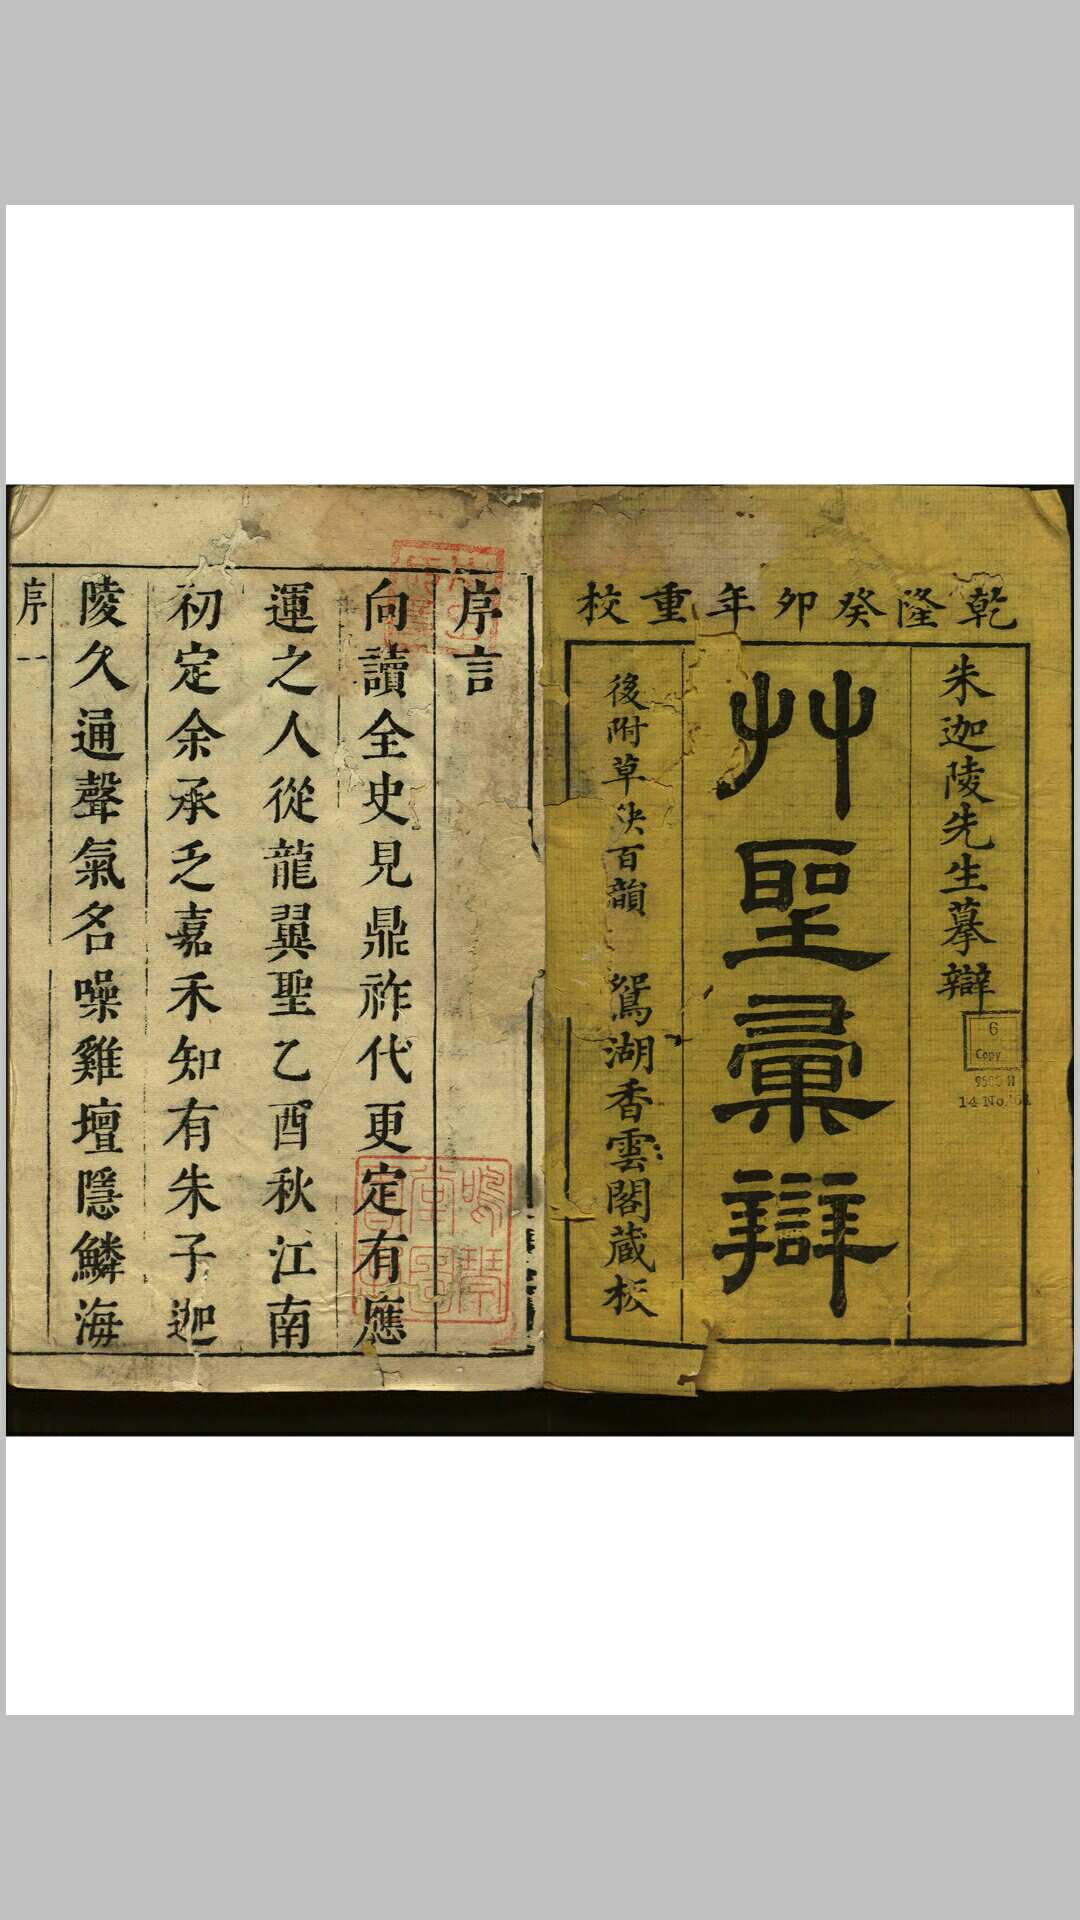 乾隆癸卯年重校
朱迦陵先生摹辯
艸聖彙辯
後附草決百韻 鴛湖香雲閣藏板
6
Copy
14 No.
序言
向讀全史見鼎祚代更定有應
運之人從龍翼聖乙酉秋江南
初定余承乏嘉禾知有朱子迦
陵久通聲氣名噪雞壇隱鱗海
序 一